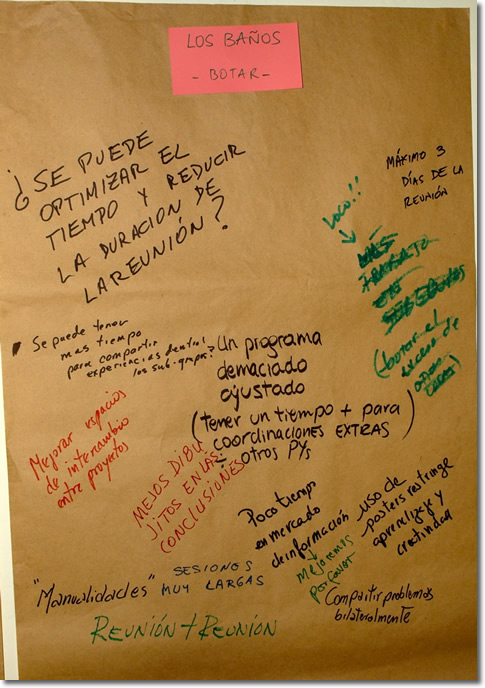 LOS BAÑOS
- BOTAR -
¿SE PUEDE
OPTIMIZAR EL
TIEMPO Y REDUCIR
LA DURACION DE
LA REUNIÓN?
MÁXIMO 3
DÍAS DE LA
REUNIÓN
LOCO!!
MÁS
TRABAJO
EN
(botar el
exceso de
Se puede tener
mas tiempo
para compartir
experiencias dentro
los sub-grupos?
Un programa
demaciado
ajustado
(tener un tiempo + para
coordinaciones EXTRAS)
otros PYs
Mejorar espacios
de intercambio
entre proyectos
MEJOS DIBU
JITOS EN LAS
CONCLUSIONES
Poco tiempo
en mercado
de información
Mejoremos
por favor
uso de
posters restringe
aprendizaje y
creatividad
"Manualidades"
SESIONES
MUY LARGAS
Compartir problemas
bilateralmente
REUNIÓN + REUNIÓN